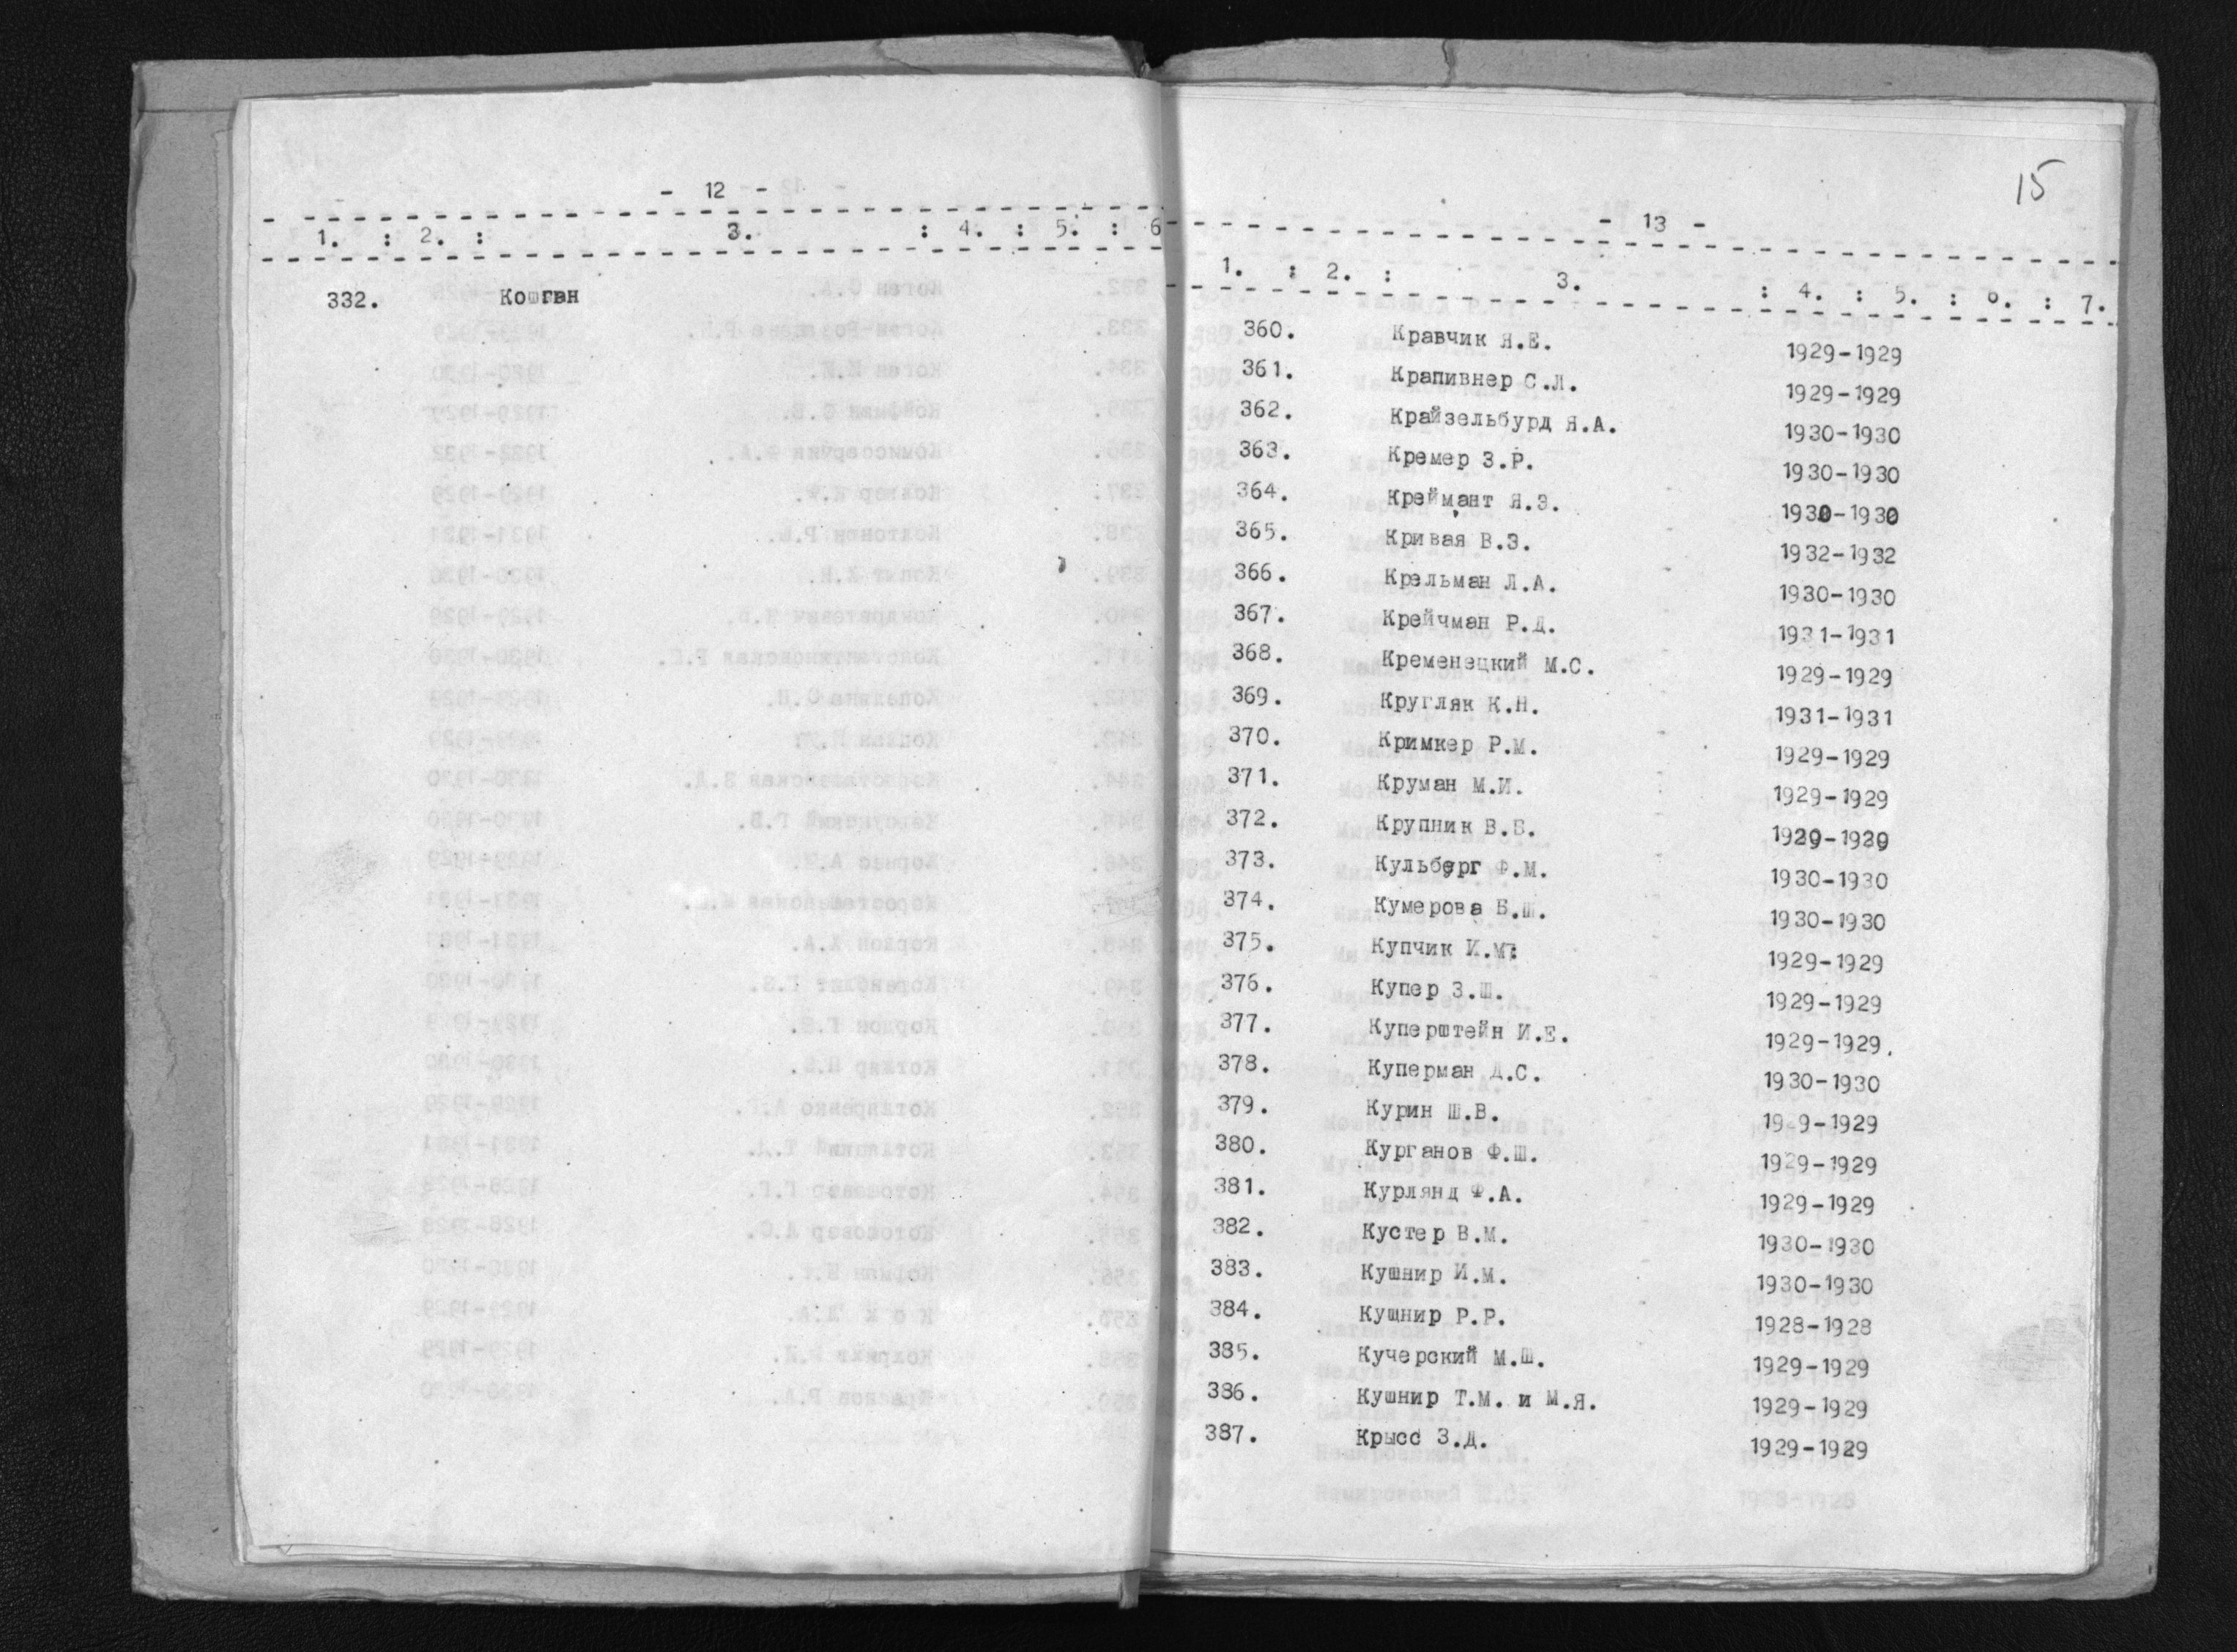 - 12 -
1. : 2. : 3. : 4. : 5. : 6
332. Коган
15
- 13 -
1. : 2. : 3. : 4. : 5. : 6. : 7.
360. Кравчик Я.Е. 1929-1929
361. Крапивнер С.Л. 1929-1929
362. Крайзельбурд Я.А. 1930-1930
363. Кремер З.Р. 1930-1930
364. Креймант Я.З. 1930-1930
365. Кривая В.Э. 1932-1932
366. Крельман Л.А. 1930-1930
367. Крейчман Р.Д. 1931-1931
368. Кременецкий М.С. 1929-1929
369. Кругляк К.Н. 1931-1931
370. Кримкер Р.М. 1929-1929
371. Круман М.И. 1929-1929
372. Крупник В.Б. 1929-1929
373. Кульберг Ф.М. 1930-1930
374. Кумерова Б.Ш. 1930-1930
375. Купчик И.М. 1929-1929
376. Купер З.Ш. 1929-1929
377. Куперштейн И.Е. 1929-1929.
378. Куперман Д.С. 1930-1930
379. Курин Ш.В. 19 9-1929
380. Курганов Ф.Ш. 1929-1929
381. Курлянд Ф.А. 1929-1929
382. Кустер В.М. 1930-1930
383. Кушнир И.М. 1930-1930
384. Кущнир Р.Р. 1928-1928
385. Кучерский М.Ш. 1929-1929
386. Кушнир Т.М. и М.Я. 1929-1929
387. Крысс З.Д. 1929-1929